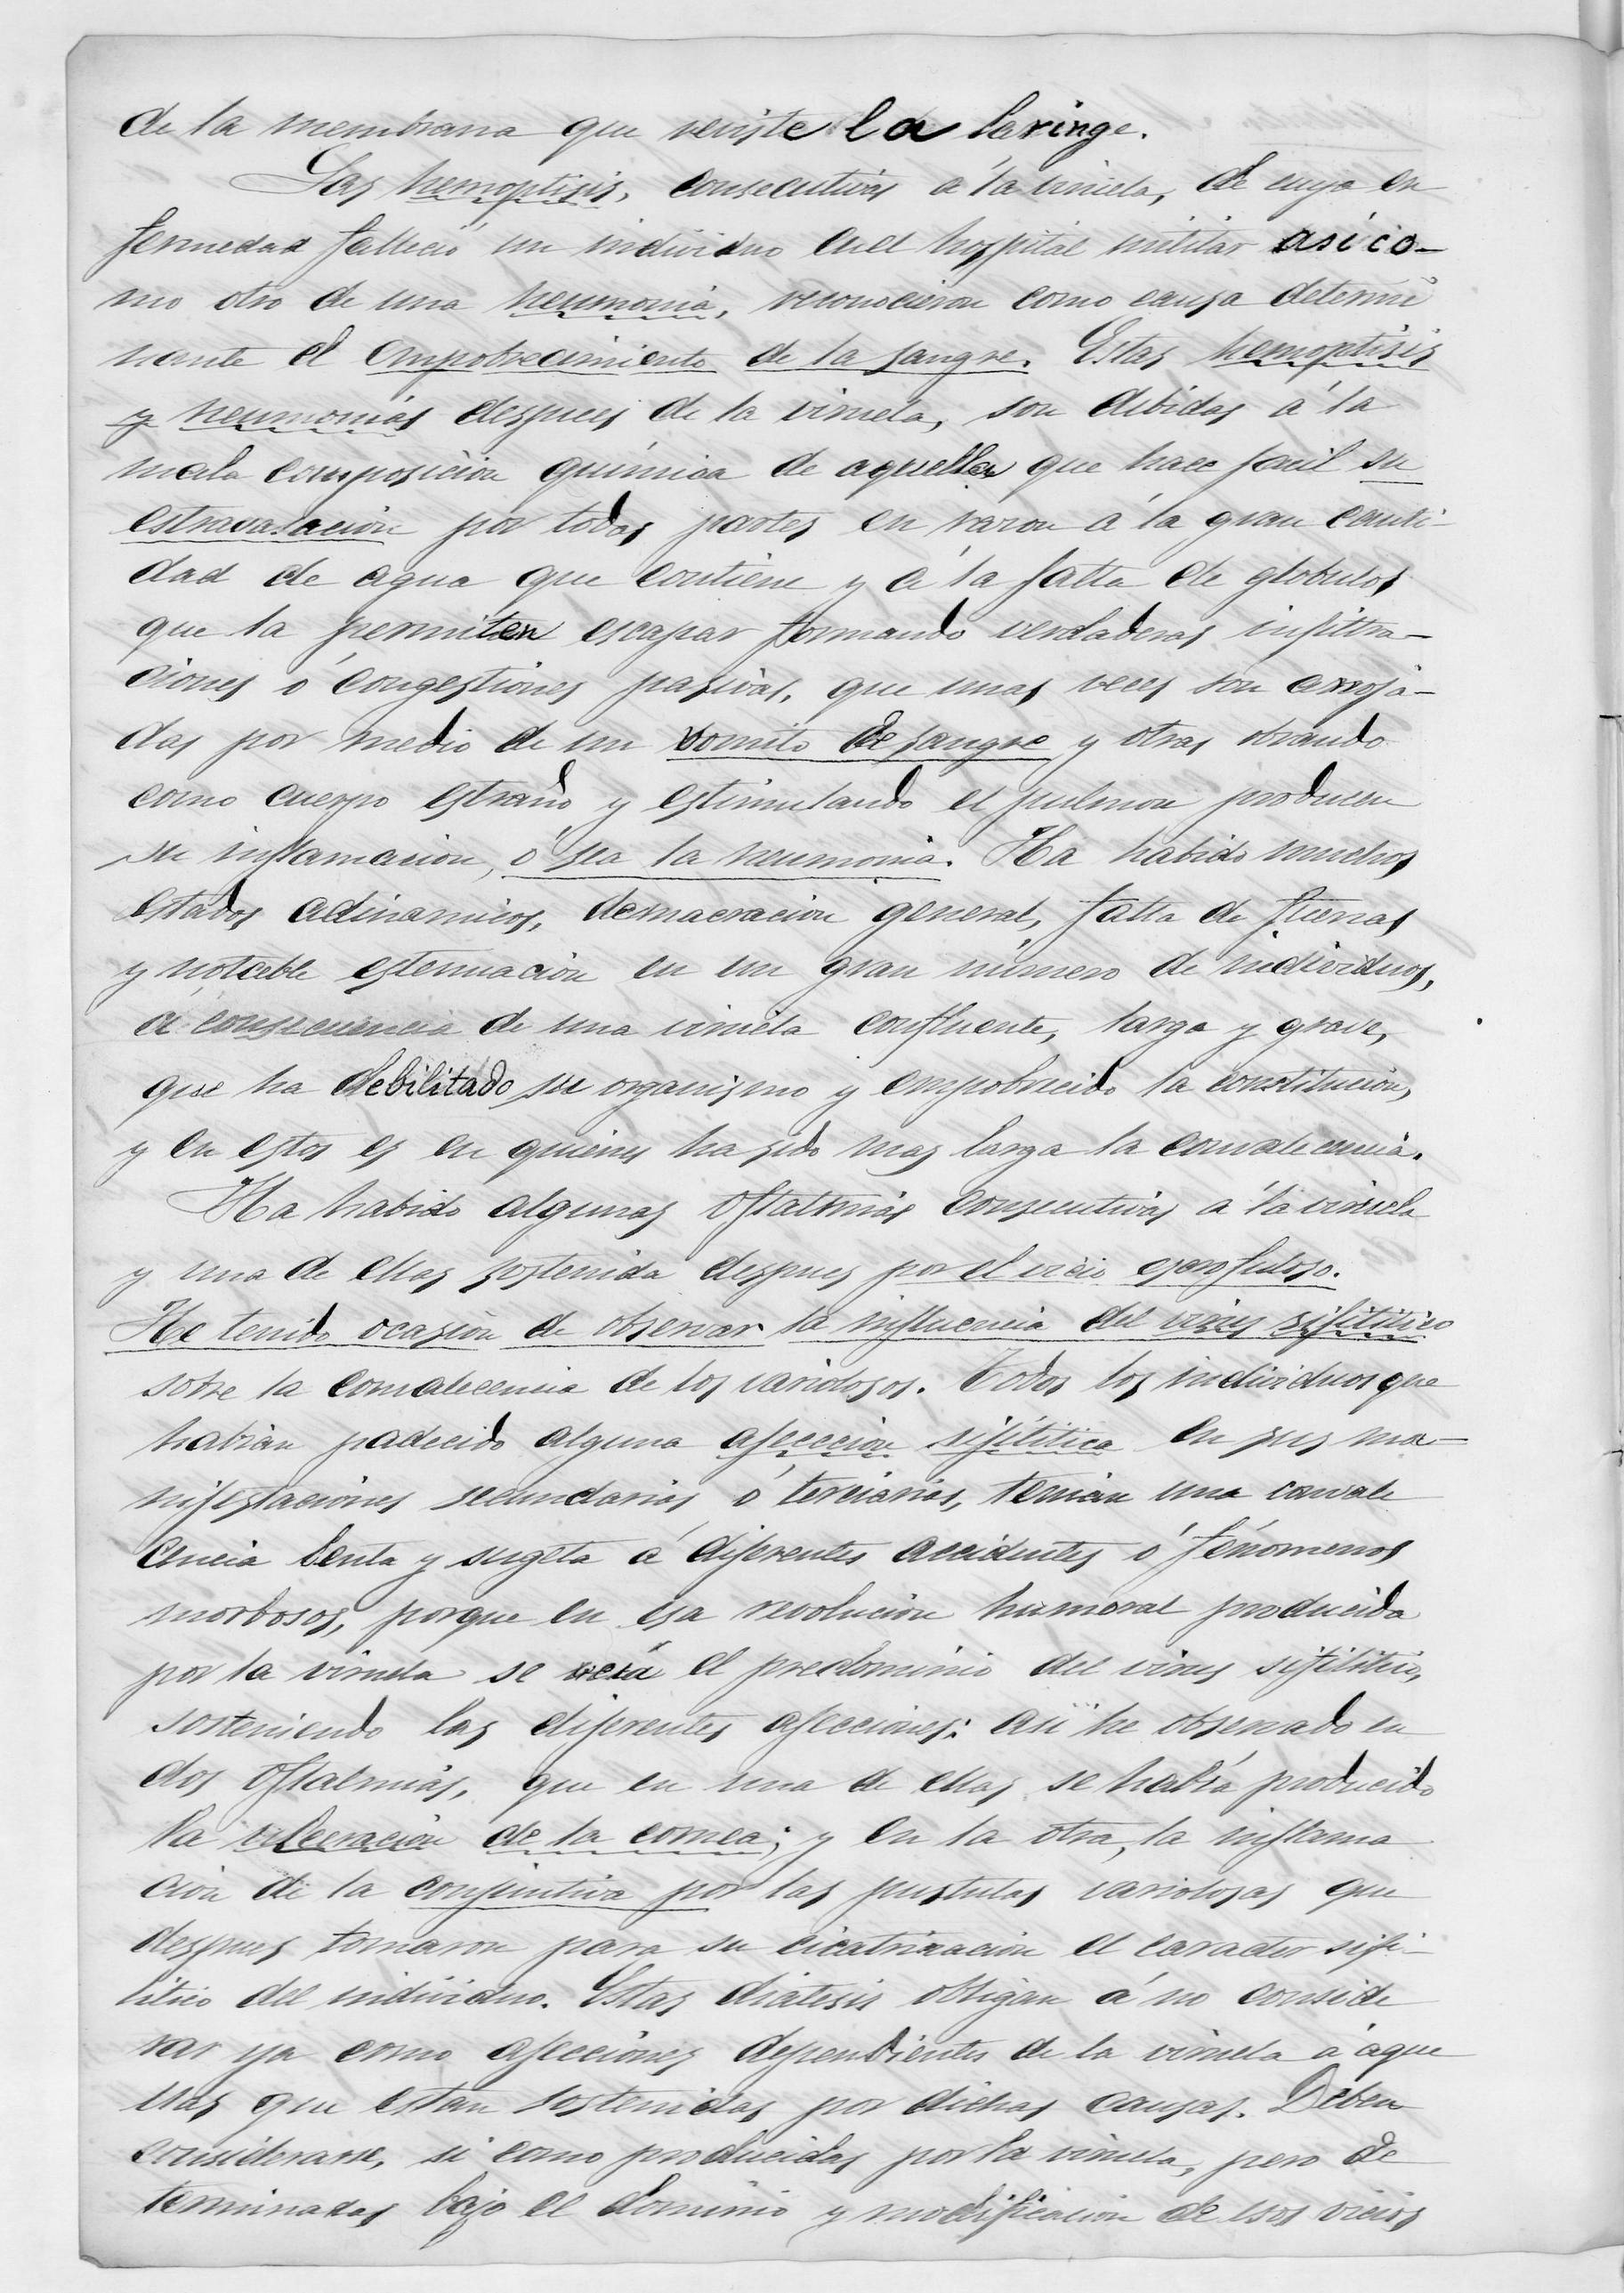 de la membrana que reviste la laringe.
Las hemoptisis, consecutivas á la viruela, de cuya en
fermedad falleció un individuo en el hospital militar asi co-
mo otro de una neumonia, reconocieron como causa determi
nante el empobrecimiento de la sangre. Estas hemoptisis
y neumonias despues de la viruela, son debidas á la
mala composicion química de aquella que hace facil su
estravasacion por todas partes en razon á la gran canti-
dad de agua que contiene y á la falta de globulos
que la permiten escapar formando verdaderas infiltra-
ciones ó congestiones pasivas, que unas veces son arroja-
das por medio de un vomito de sangre y otras obrando
como cuerpo estraño y estimulando el pulmon producen
su inflamacion, ó sea la neumonia. Ha habido muchos
estados adinamicos, demacracion general, falta de fuerzas
y notable estenuacion en un gran número de individuos,
á consecuencia de una viruela confluente, larga y grave,
que ha debilitado su organismo y empobrecido la constitucion,
y en estos es en quienes ha sido mas larga la convalecencia.
Ha habido algunas oftalmias consecutivas á la viruela
y una de ellas sostenida despues por el vicio escrofuloso.
He tenido ocasion de observar la influencia del virus sifilitico
sobre la convalecencia de los variolosos. Todos los individuos que
habian padecido alguna afeccion sifilitica en sus ma-
nifestaciones secundarias ó terciarias, tenian una convale
cencia lenta y sugeta á diferentes accidentes ó fenómenos
morbosos, porque en esa revolucion humoral producida
por la viruela se veia el predominio del virus sifilitico,
sosteniendo las diferentes afecciones: asi he observado en
dos oftalmias, que en una de ellas se habia producido
la ulceracion de la cornea; y en la otra, la inflama
cion de la conjuntiva por las pustulas variolosas que
despues tomaron para su cicatrizacion el caracter sifi-
litico del individuo. Estas diatesis obligan á no conside
rar ya como afecciones dependientes de la viruela á aque
llas que estan sostenidas por dichas causas. Deben
considerarse, si como producidas por la viruela, pero de
terminadas bajo el dominio y modificacion de esos vicios